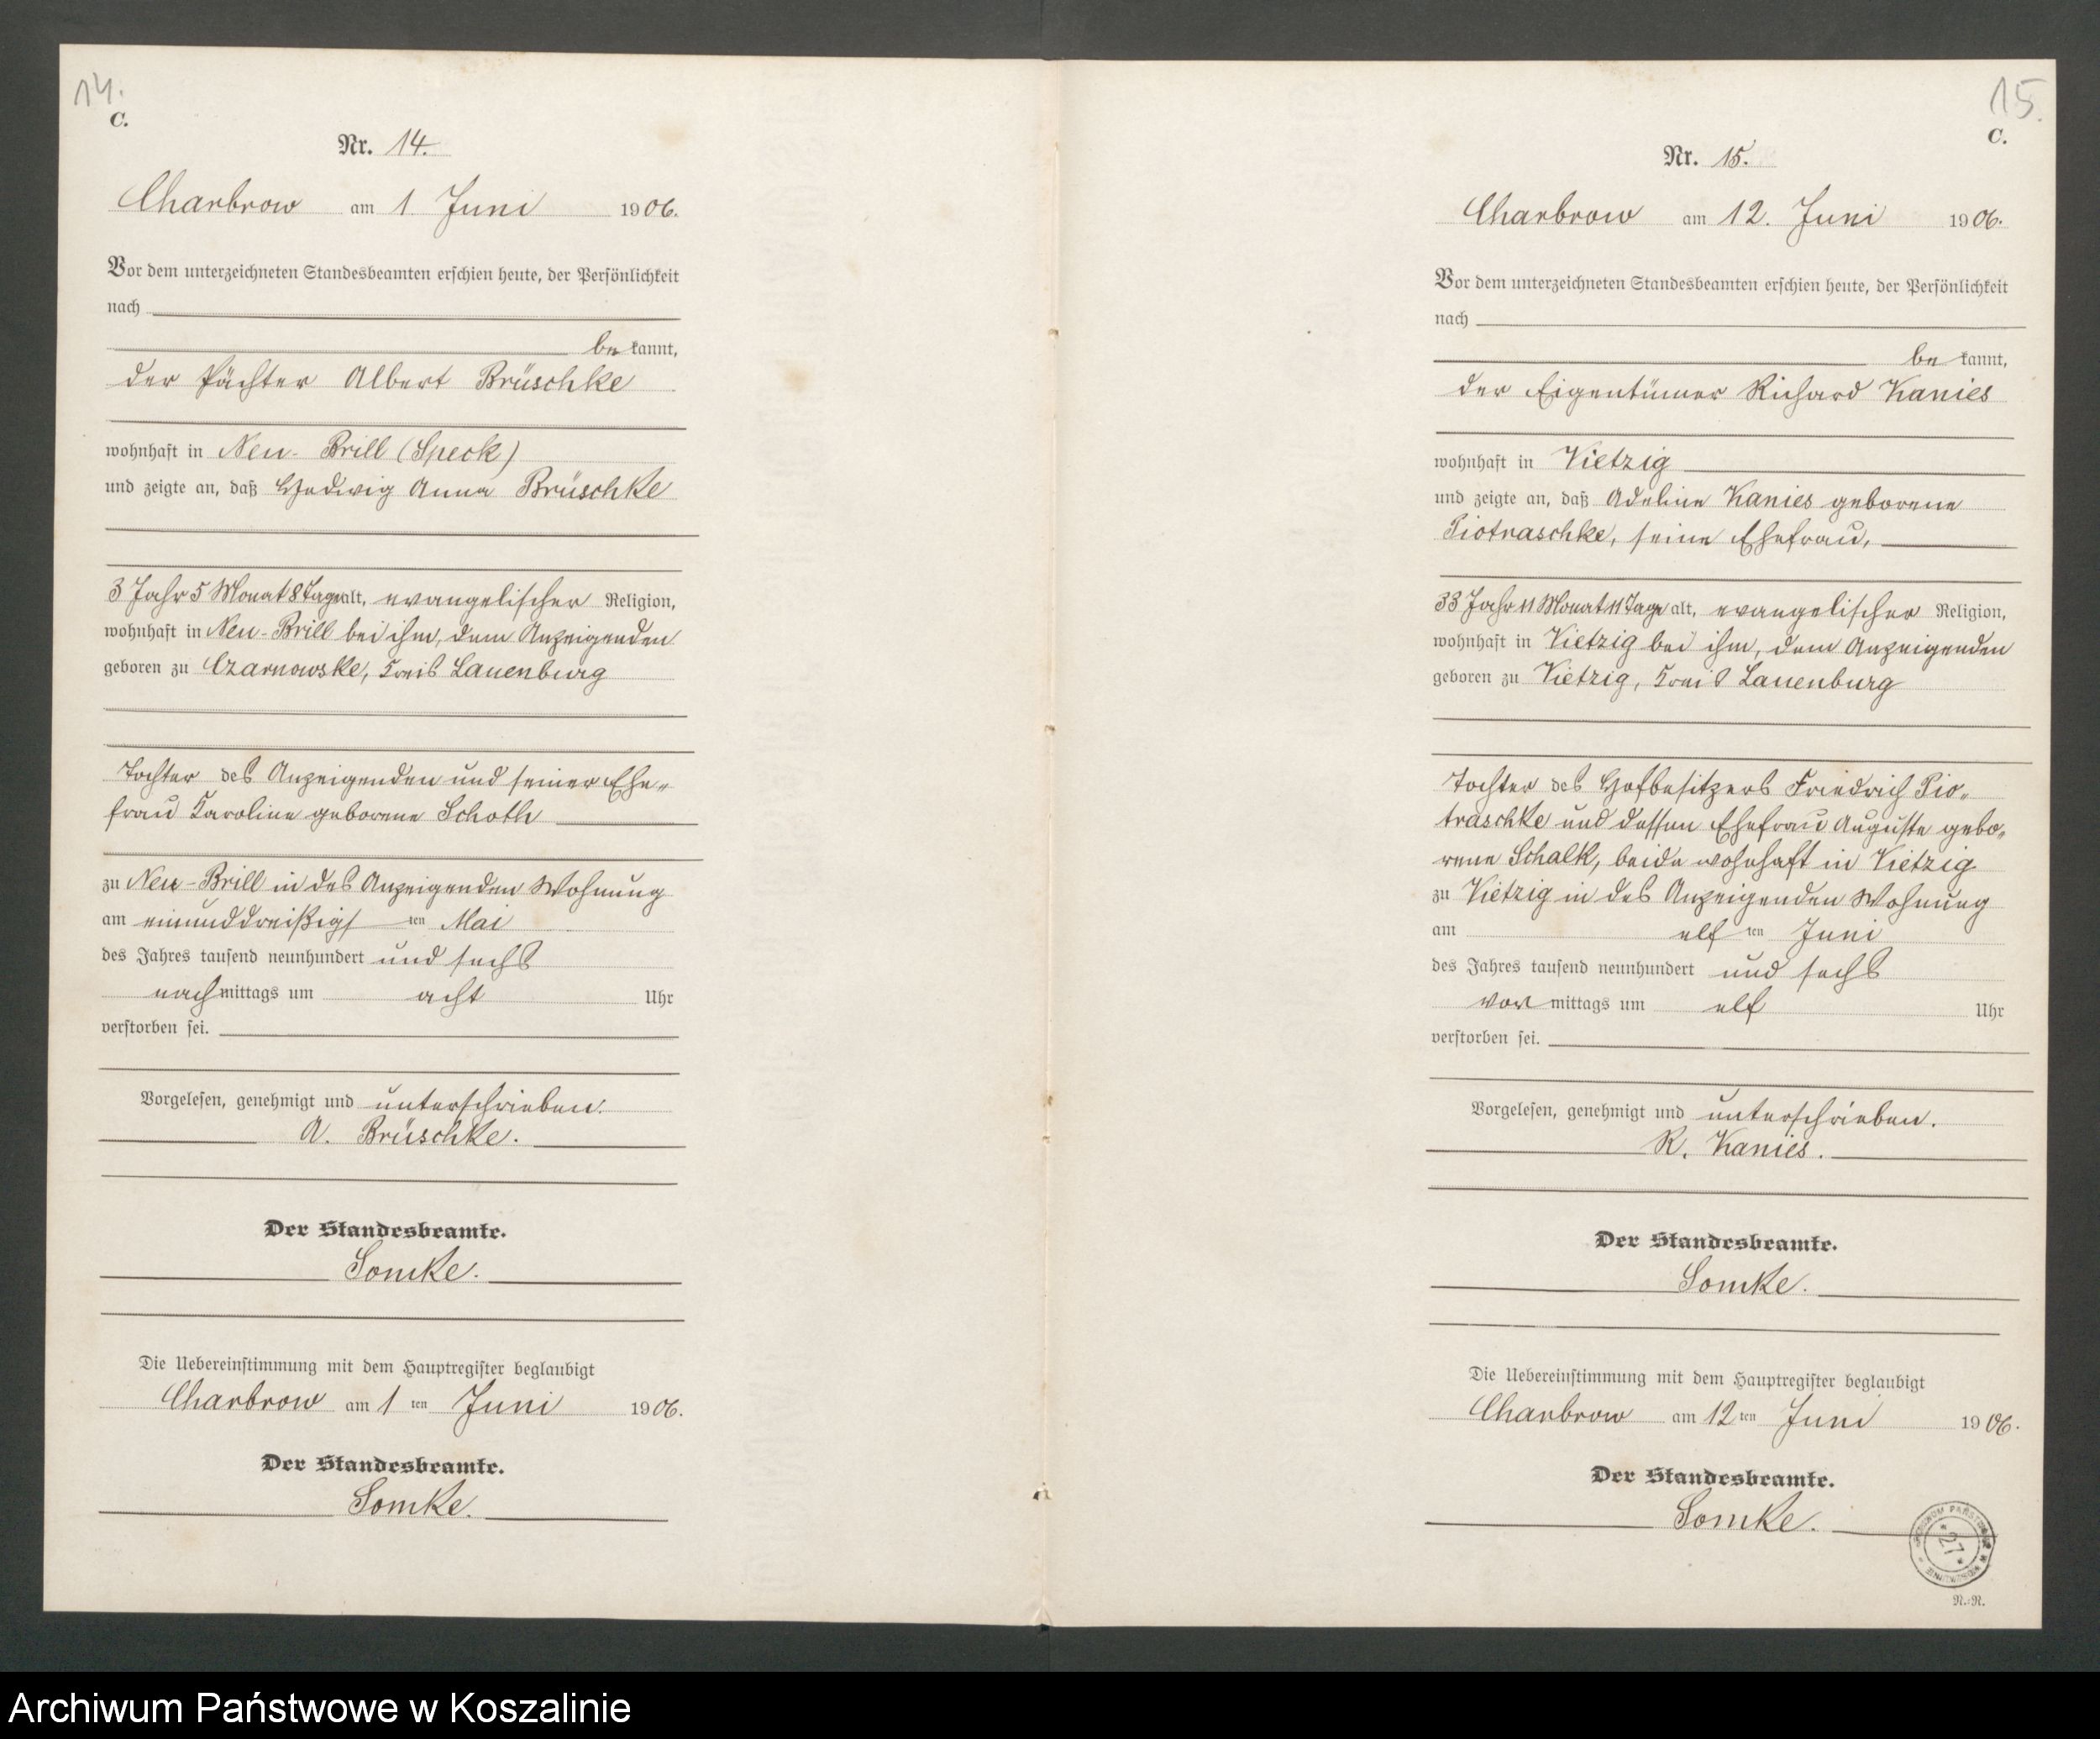 14.
C.
Nr. 14.
Charbrow am 1 Juni 1906.
Vor dem unterzeichneten Standesbeamten erschien heute, der Persönlichkeit
nach
bekannt,
der Pächter Albert Brüschke
wohnhaft in Neu-Brill (Speck)
und zeigte an, daß Hedwig Anna Brüschke
3 Jahr 5 Monat 8 Tage alt, evangelischer Religion,
wohnhaft in Neu-Brill bei ihm, dem Anzeigenden
geboren zu Czarnowske, Kreis Lauenburg
Tochter des Anzeigenden und seiner Ehe„
frau Karoline geborene Schoth
zu Neu-Brill in des Anzeigenden Wohnung
am einunddreißigsten Mai
des Jahres tausend neunhundert und sechs
nachmittags um acht Uhr
verstorben sei.
Vorgelesen, genehmigt und unterschrieben.
A. Brüschke.
Der Standesbeamte.
Somke.
Die Uebereinstimmung mit dem Hauptregister beglaubigt
Charbrow am 1 ten Juni 1906.
Der Standesbeamte.
Somke.
15.
C.
Nr. 15.
Charbrow am 12. Juni 1906.
Vor dem unterzeichneten Standesbeamten erschien heute, der Persönlichkeit
nach
bekannt,
der Eigentümer Richard Kanies
wohnhaft in Vietzig
und zeigte an, daß Adeline Kanies geborene
Piotraschke, seine Ehefrau,
33 Jahr 11 Monat 11 Tage alt, evangelischer Religion,
wohnhaft in Vietzig bei ihm, dem Anzeigenden
geboren zu Vietzig, Kreis Lauenburg
Tochter des Hofbesitzers Friedrich Pio„
traschke und dessen Ehefrau Auguste gebo„
rene Schalk, beide wohnhaft in Vietzig
zu Vietzig in des Anzeigenden Wohnung
am elften Juni
des Jahres tausend neunhundert und sechs
vormittags um elf Uhr
verstorben sei.
Vorgelesen, genehmigt und unterschrieben.
R. Kanies.
Der Standesbeamte.
Somke.
Die Uebereinstimmung mit dem Hauptregister beglaubigt
Charbrow am 12 ten Juni 1906.
Der Standesbeamte.
Somke.
*27*
N.-R.
Archiwum Państwowe w Koszalinie